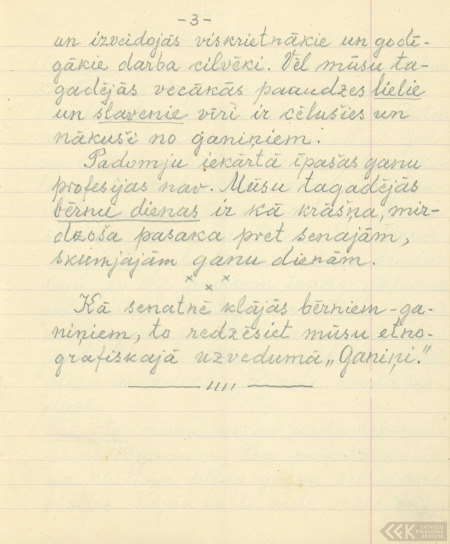 -3-
un izveidojās viskrietnākie un godī-
gākie darba cilvēki. Vēl mūsu ta-
gadējās vecākās paaudzes lielie
un slavenie vīri ir cēlušies un
nākuši no ganiņiem.
Padomju iekārtā īpašas ganu
profesijas nav. Mūsu tagadējās
bērnu dienas ir kā krāšņa, mir-
dzoša pasaka pret senajām,
skumjajām ganu dienām.
x x x
Kā senatnē klājās bērniem-ga-
niņiem, to redzēsiet mūsu etno-
grafiskajā uzvedumā „Ganiņi."